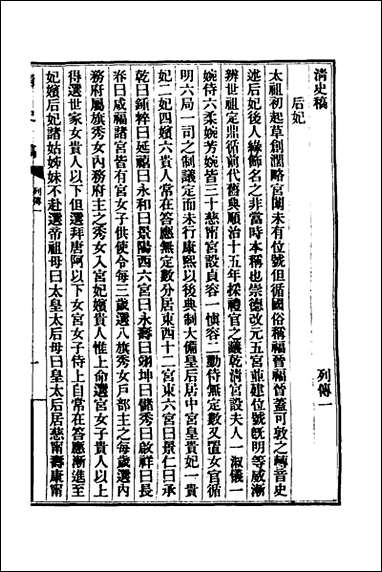 清史稿
列傳一
后妃
太祖初起草創闊略宮闈未有位號但循國俗稱福晉福晉蓋可敦之轉音史
述后妃後人緣飾名之非當時本稱也崇德改元五宮並建位號旣明等威漸
辨世祖定鼎循前代舊典順治十五年採禮官之議乾淸宮設夫人一淑儀一
婉侍六柔婉芳婉皆三十慈甯宮設貞容一愼容二勤侍無定數又置女官循
明六局一司之制議定而未行康熙以後典制大備皇后居中宮皇貴妃一貴
妃二妃四嬪六貴人常在答應無定數分居東西十二宮東六宮曰景仁曰承
乾曰鍾粹曰延禧曰永和曰景陽西六宮曰永壽曰翊坤曰儲秀曰啟祥曰長
春曰咸福諸宮皆有宮女子供使令每三歲選八旗秀女戶部主之每歲選內
務府屬旗秀女內務府主之秀女入宮妃嬪貴人惟上命選宮女子貴人以上
得選世家女貴人以下但選拜唐阿以下女宮女子侍上自常在答應漸進至
妃嬪后妃諸姑姊妹不赴選帝祖母曰太皇太后母曰皇太后居慈甯壽康甯
列傳一